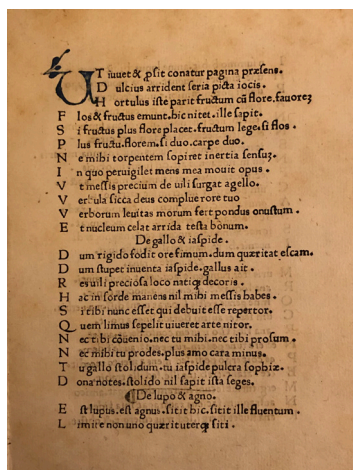 UT iuuet & ꝓsit conatur pagina præsens.
D ulcius arrident seria picta iocis.
H ortulus iste parit fructum cū flore. fauoreꝫ
F los & fructus emunt. hic nitet. ille sapit.
S i fructus plus flore placet. fructum lege. si flos.
P lus fructu. florem. si duo. carpe duo.
N e mihi torpentem sopiret inertia sensuꝫ.
I n quo peruigilet mens mea mouit opus.
V t messis precium de uili surgat agello.
V erbula sicca deus complue rore tuo
V erborum leuitas morum fert pondus onustum.
E t nucleum celat arrida testa bonum.
De gallo & iaspide.
D um rigido fodit ore fimum. dum quæritat escam.
D um stupet inuenta iaspide. gallus ait.
R es uili preciosa loco natiqꝫ decoris.
H ac in sorde manens nil mihi messis habes.
S i tibi nunc esset qui debuit esse repertor.
Q uem limus sepelit uiueret arte nitor.
N ec tibi cōuenio. nec tu mihi. nec tibi prosum.
N ec mihi tu prodes. plus amo cara minus.
T u gallo stolidum. tu iaspide pulcra sophiæ.
D ona notes. stolido nil sapit ista seges.
De lupo & agno.
E st lupus. est agnus. sitit hic. sitit ille fluentum.
L imite non uno quærit uterqꝫ siti.